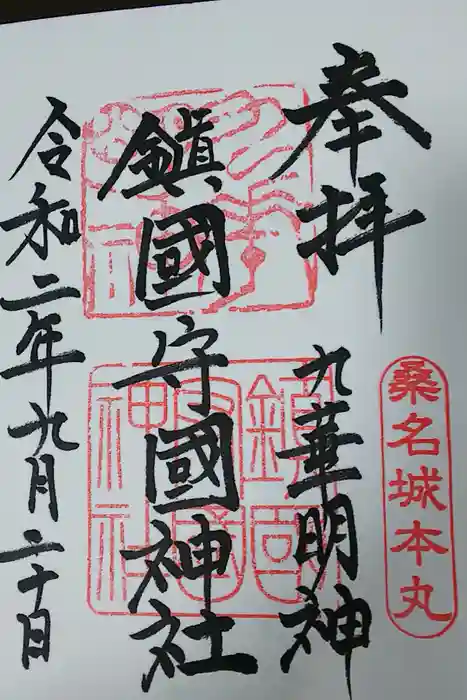 奉拝
九華明神
桑名城本丸
鎮國守國神社
令和二年九月二十日